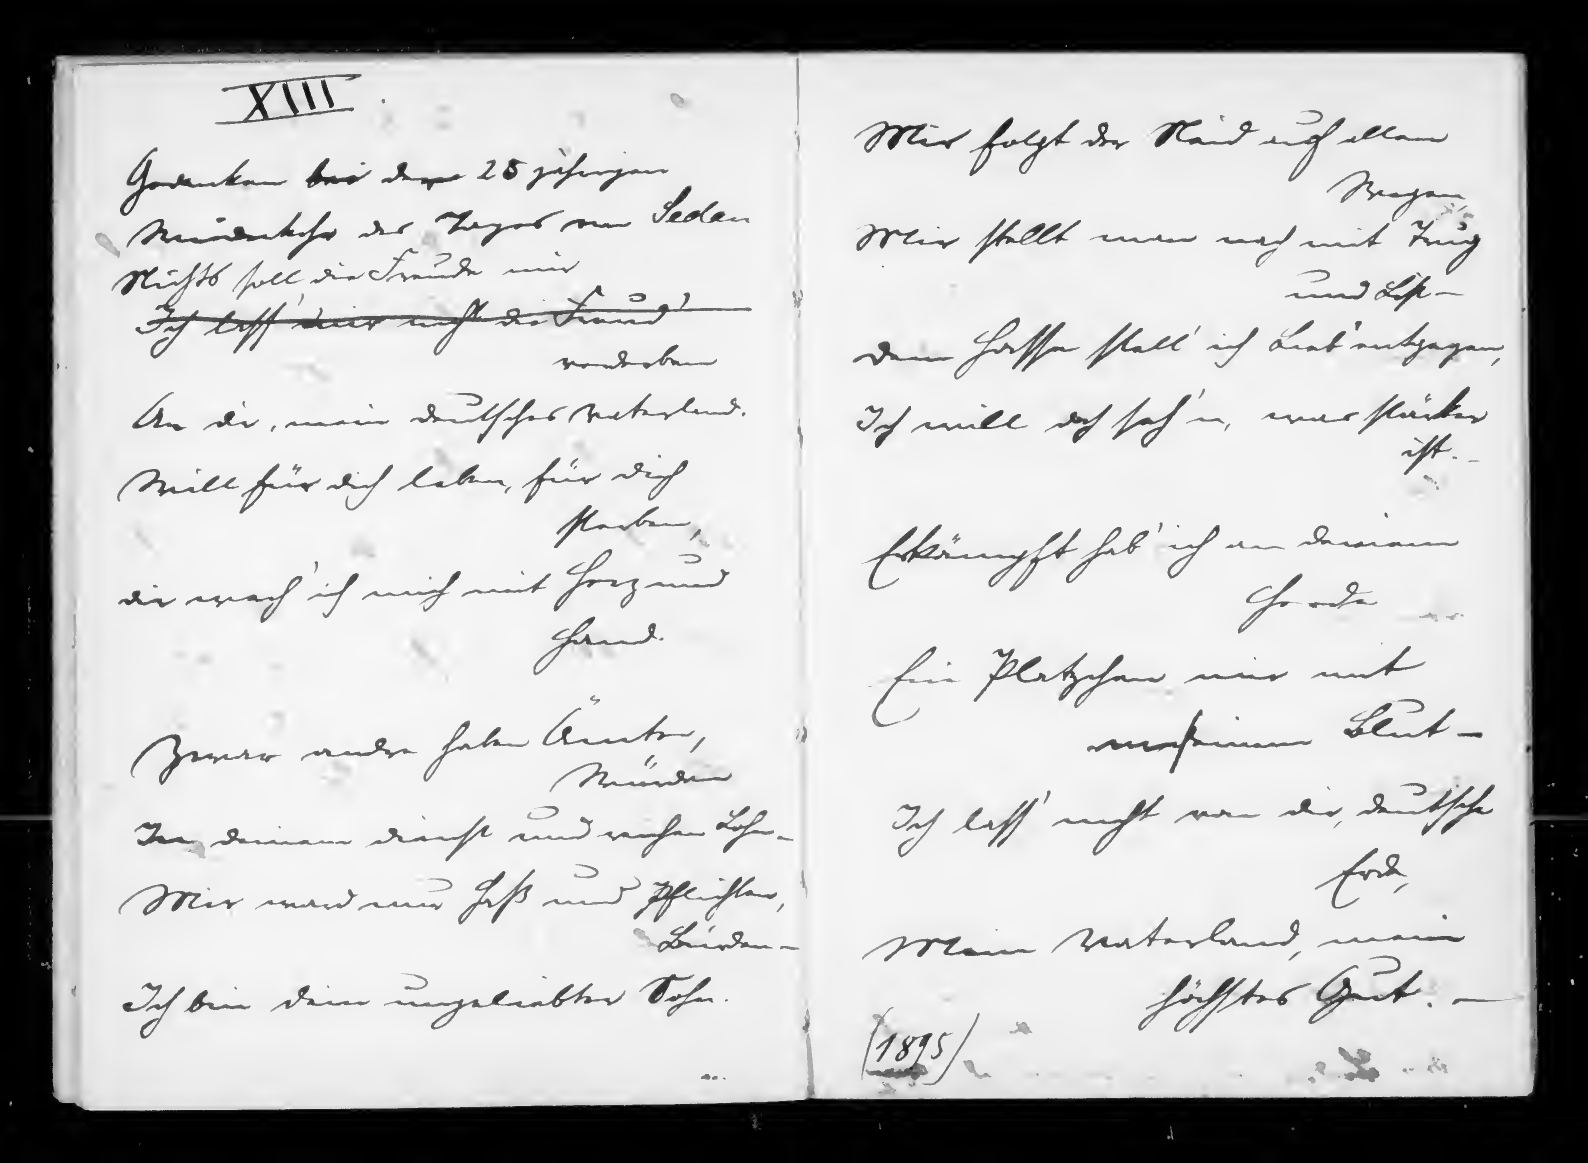 XIII.
Gedanken bei der 25 jährigen
Wiederkehr des Tages von Sedan
Nichts soll die Freude mir
Ich lass' mir nicht die Freud'
verderben
An dir, mein deutsches Vaterland.
Will für dich leben, für dich
sterben,
dir weih' ich mich mit Herz und
Hand.
Zwar andre haben Ämter,
Würden
In deinem Dienst und reichen Lohn –
Mir ward nur Haß und Pflichten,
Bürden –
Ich bin dein ungeliebter Sohn.
Mir folgt der Neid auf allen
Wegen,
Mir stellt man nach mit Trug
und List –
dem Hasse stell' ich Lieb' entgegen,
Ich will doch seh'n, was stärker
ist. –
Erkämpft hab' ich an deinem
Herde
Ein Plätzchen mir mit
meinem Blut –
Ich lass' nicht von dir, deutsche
Erde,
Mein Vaterland, mein
höchstes Gut. –
(1895)